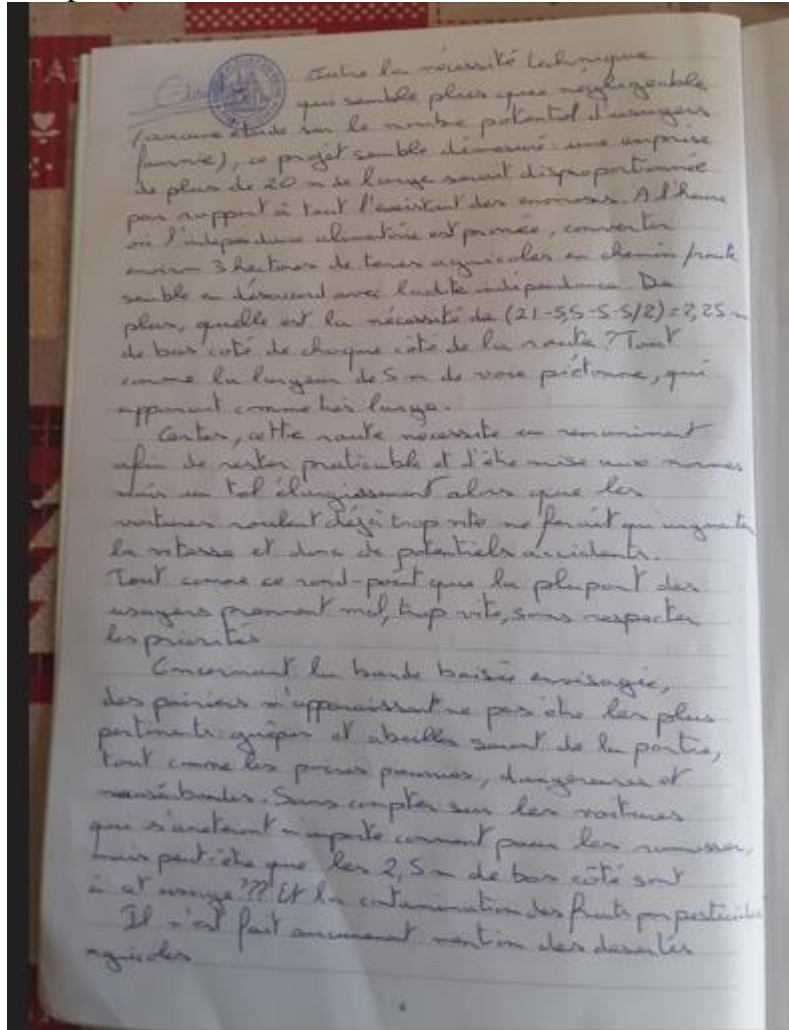 Outre la nécessité technique
qui semble plus que négligeable
(aucune étude sur le nombre potentiel d'usagers
fournie), ce projet semble démesuré: une emprise
de plus de 20 m de large serait disproportionnée
par rapport à tout l'existant des environs. A l'heure
où l'indépendance alimentaire est pronée, convertir
environ 3 hectares de terres agricoles en chemin/route
semble en désaccord avec ladite indépendance. De
plus, quelle est la nécessité de (21-5,5-5-5/2)=2,25m
de bas coté de chaque côté de la route? Tout
comme la largeur de 5 m de voie piétonne, qui
apparait comme très large.
Certes, cette route nécessite un remaniment
afin de rester praticable et d'être mise aux normes
mais un tel élargissement alors que les
voitures roulent déjà trop vite ne ferait qu'augmenter
la vitesse et donc de potentiels accidents.
Tout comme ce rond-point que la plupart des
usagers prennent mal, trop vite, sans respecter
les priorités
Concernant la bande boisée envisagée,
des poiriers m'apparaissent ne pas être les plus
pertinents: guêpes et abeilles seront de la partie,
tout comme les poires pourries, dangereuses et
nauséabondes. Sans compter sur les voitures
qui s'arreteront n'importe comment pour les ramasser,
mais peut-être que les 2,5m de bas côté sont
à cet usage??? Et la contamination des fruits par pesticides
Il n'est fait aucunement mention des dessertes
agricoles